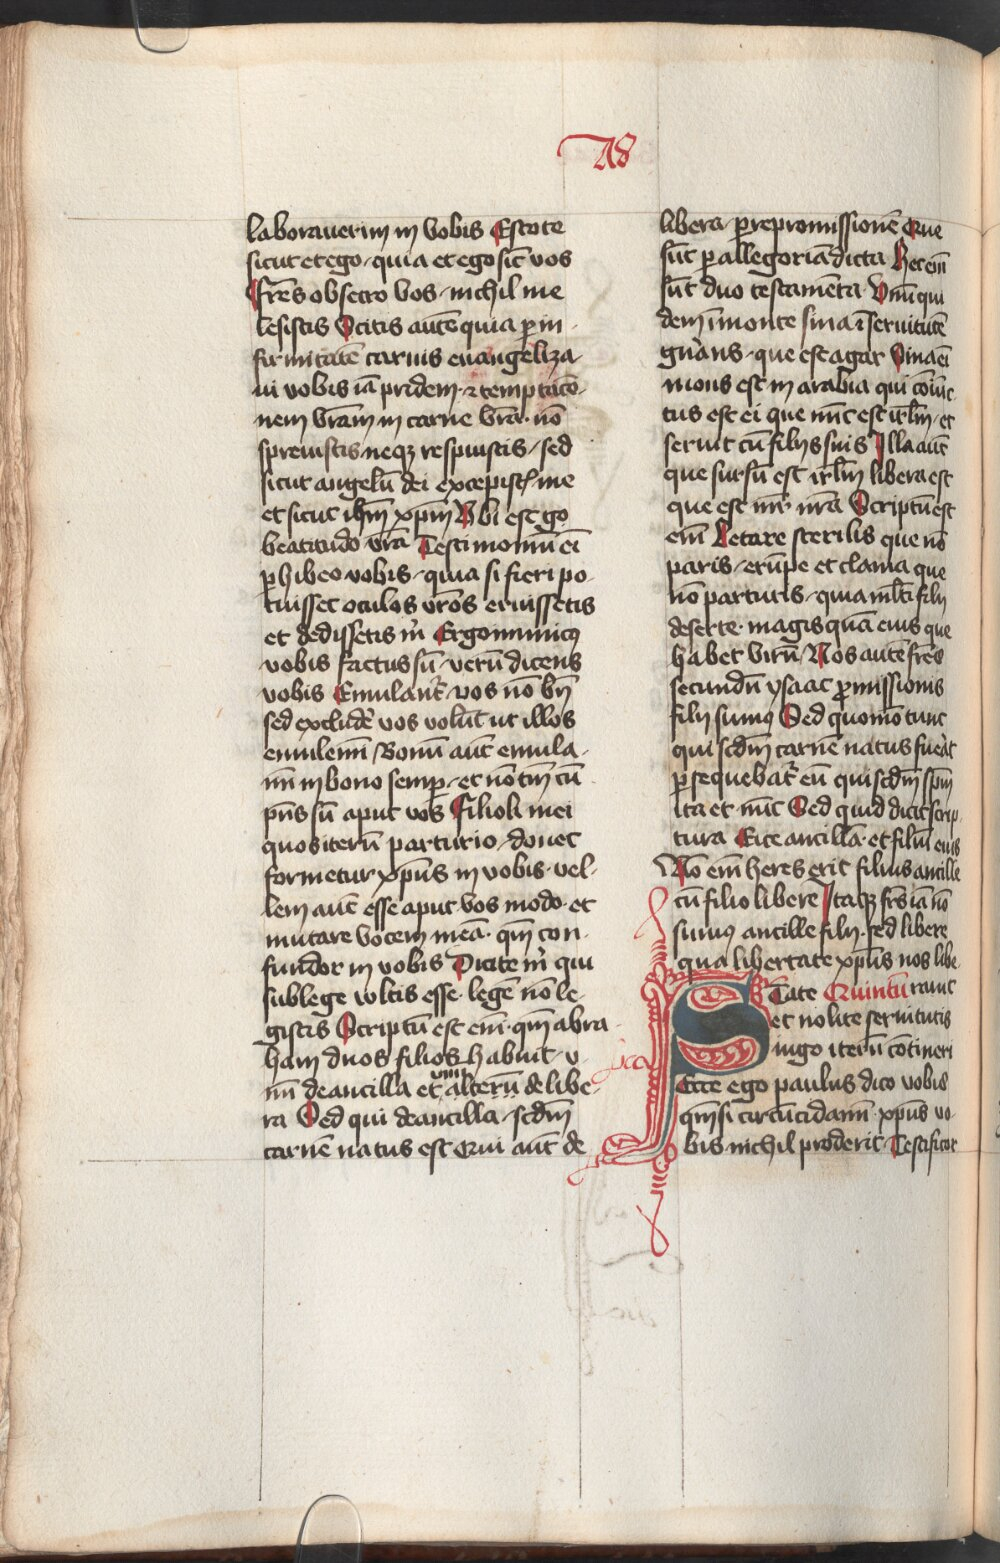 A8
laborauerim in vobis Estote
sicut et ego quia et ego sic̄ vos
fr̄es obsecro vos nichil me
lesistis Scitis autē quia ꝑ in
firmitatē carnis euangeliza
ui vobis iā pridem ⁊ temptacō
nem vr̄am in carne vr̄a nō
spreuistis neqꝫ respuistis sed
sicut angelū dei excepistis me
et sicut ihm̄ xp̄m Vbi est go
beatitudo vr̄a Testimoniū ei
ꝑhibeo vobis quia si fieri po
tuisset oculos vr̄os eruissetis
et dedissetis m̄ Ergo inimicꝰ
vobis factus sū verū dicens
vobis Emulant̄ vos nō bn̄
sed excludē vos volūt ut illos
emulemī Bonū aut̄ emula
mī in bono semꝑ et nō tm̄ cū
pn̄s sū aput vos Filioli mei
quos iterū parturio donec
formetur xp̄us in vobis vel
lem aut̄ esse aput vos modo et
mutare vocem meā qm̄ con
fundor in vobis Dicite m̄ qui
sub lege wltis esse legē nō le
gistis Scriptū est em̄ qm̄ abra
ham duos filios habuit v
nū de ancilla et vnū alterū de libe
ra Sed qui de ancilla scdm̄
carnē natus est Qui aut̄ de
libera ꝑ repromissionē Que
sūt ꝑ allegoriā dicta Hec em̄
sūt duo testamēta Vnū qui
dem ī monte sina ī seruitutē
gn̄ans que est agar Sina em̄
mons est in arabia qui cōiūc
tus est ei que nūc est irl̄m et
seruit cū filijs suis Illa aut̄
que sursū est irl̄m libera est
que est mr̄ nr̄a Scriptū est
em̄ Letare sterilis que nō
paris erūpe et clama que
nō parturis quia ml̄ti filij
deserte magis quā eius que
habet virū Nos autē fr̄es
secundū ysaac ꝓmissionis
filij sumꝰ Sed quomō tunc
qui scdm̄ carnē natus fūat
ꝑsequebat̄ eū qui scdm̄ spm̄
ita et nūc Sed quid dicit scrip
tura Eice ancillā et filiū eius
Nō em̄ heres erit filius ancille
cū filio libere Itaqꝫ frēs iā nō
sumꝰ ancille filij sed libere
qua libertate xp̄us nos libe
State Quintū rauit
et nolite seruitutis
iugo iterū cōtineri
Ecce ego paulus dico vobis
qm̄ si circūcidamī xp̄us vo
bis nichil proderit Testificor